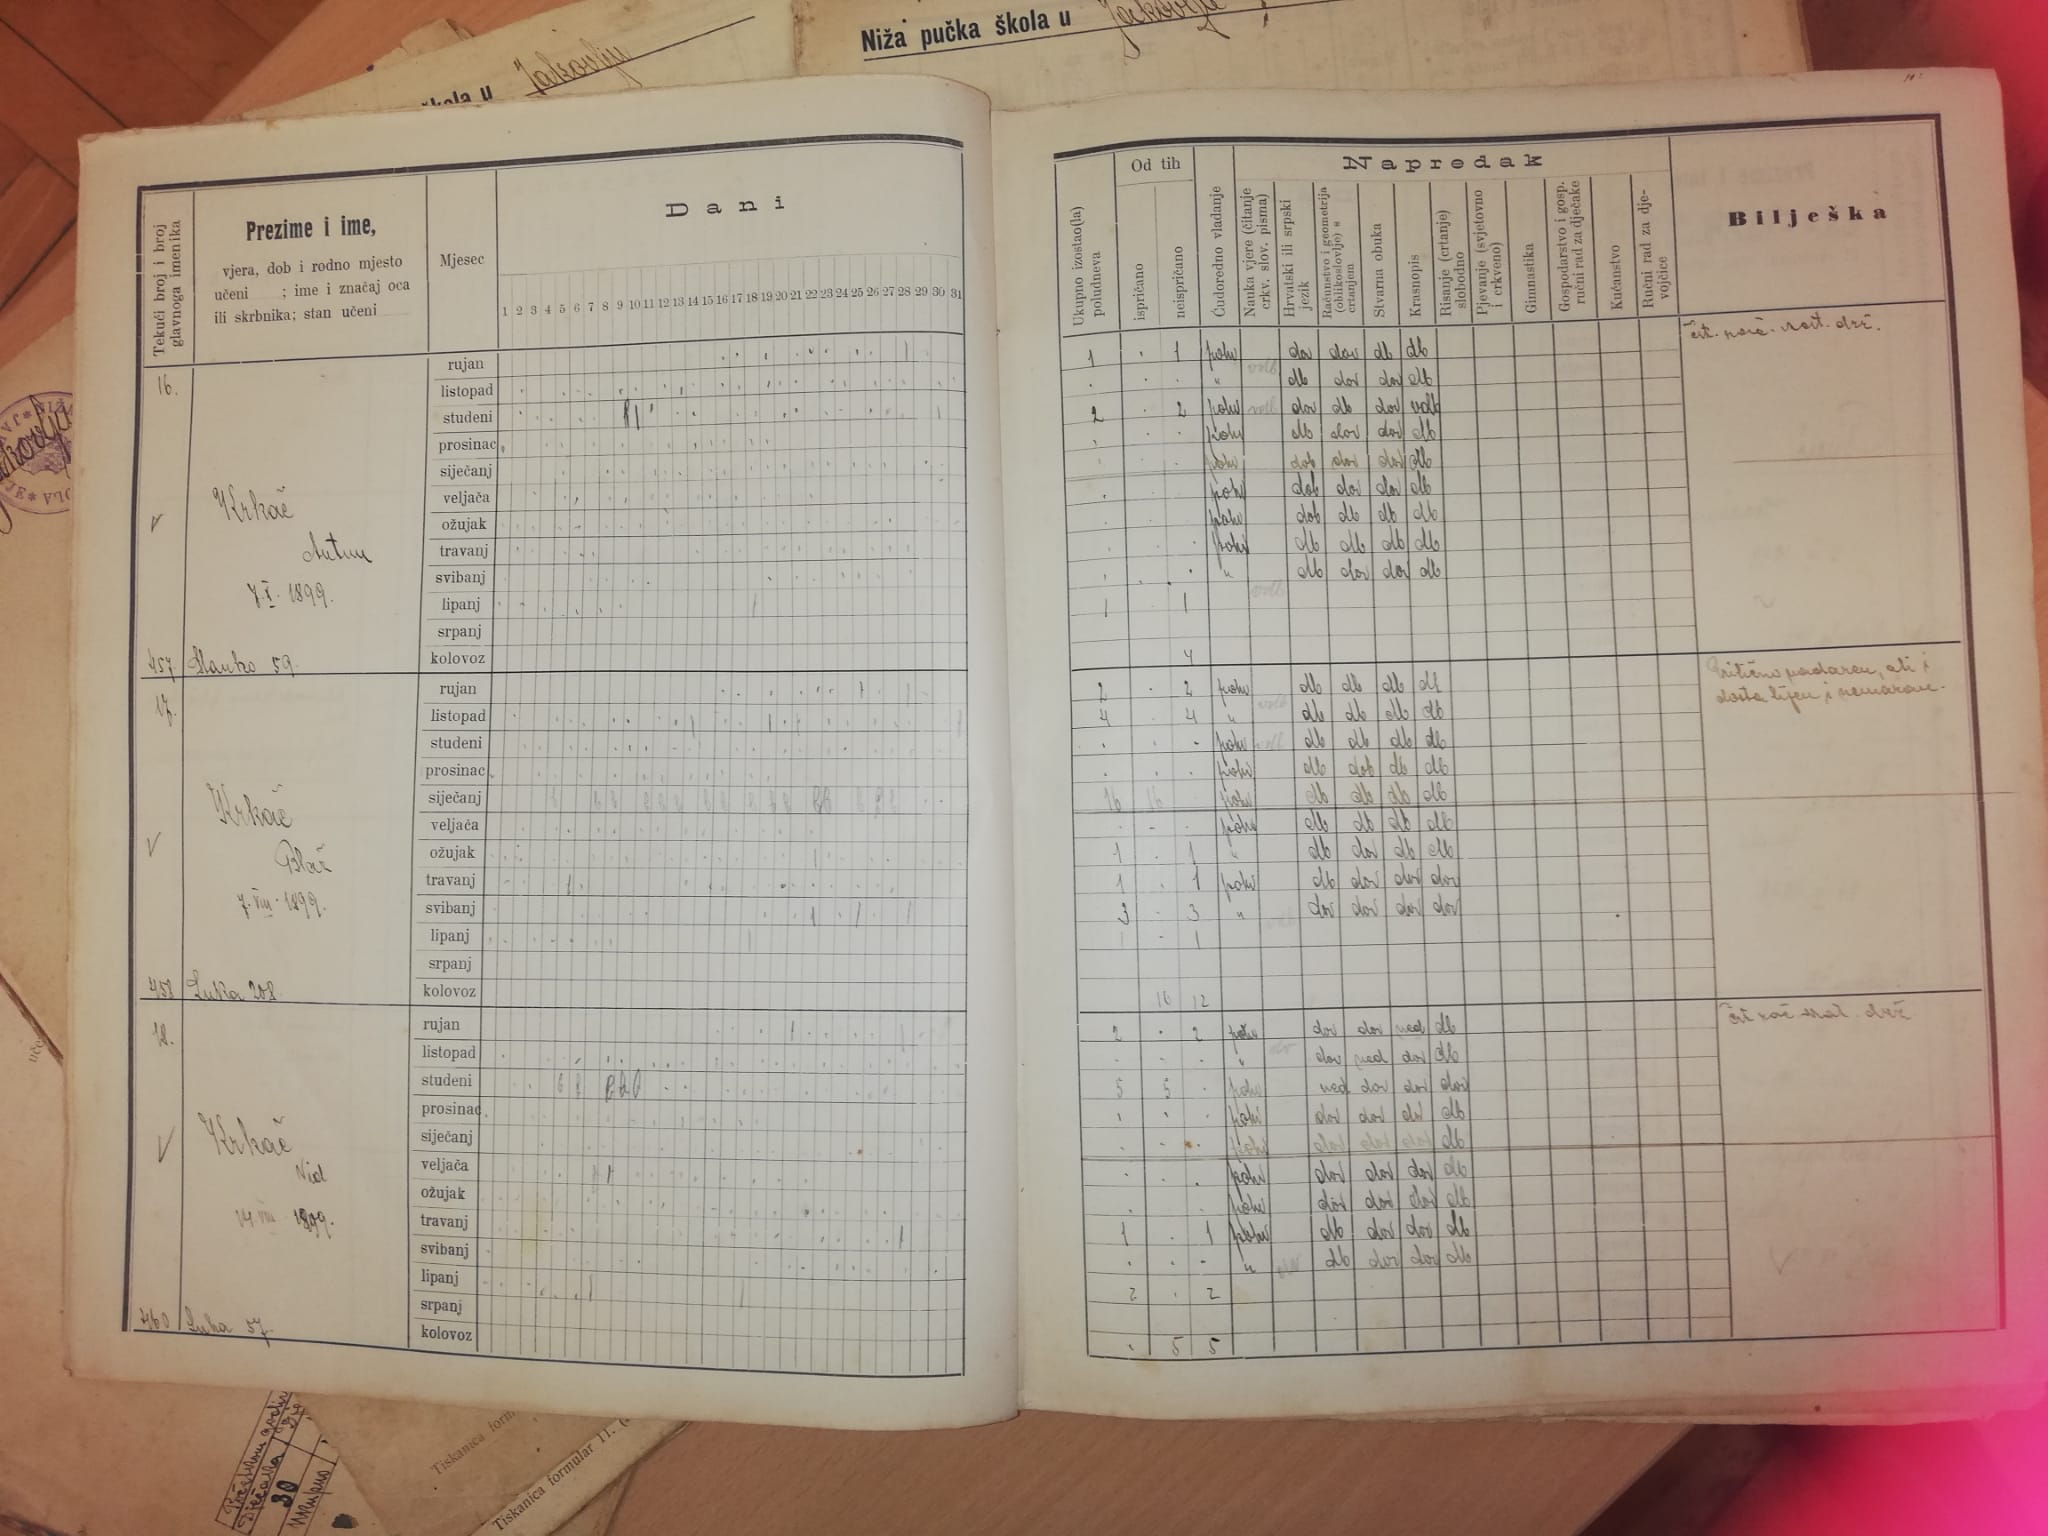 škola u Jakovlju
Niža pučka škola u Jakovlje
Tekući broj i broj glavnoga imenika
Prezime i ime,
vjera, dob i rodno mjesto
učeni ; ime i značaj oca
ili skrbnika; stan učeni
Mjesec
Dani
1 2 3 4 5 6 7 8 9 10 11 12 13 14 15 16 17 18 19 20 21 22 23 24 25 26 27 28 29 30 31
Ukupno izostao(la) poludneva
Od tih
ispričano
neispričano
Ćudoredno vladanje
Napredak
Nauka vjere (čitanje crkv. slov. pisma)
Hrvatski ili srpski jezik
Računstvo i geometrija (oblikoslovlje) s crtanjem
Stvarna obuka
Krasnopis
Risanje (crtanje) slobodno
Pjevanje (svjetovno i crkveno)
Gimnastika
Gospodarstvo i gosp. ručni rad za dječake
Kućanstvo
Ručni rad za djevojčice
Bilješka
16.
Krkač
Antun
7.X. 1899.
457 Stanko 59.
rujan 1 . 1 pohv dov dov db db
listopad . . „ db dov dov db
studeni 2 . 2 pohv dov db dov vdb
prosinac pohv db dov dov db
siječanj pohv dob dov dov db
veljača pohv dob dov dov db
ožujak pohv dob db db db
travanj pohv db db db db
svibanj „ db dov dov db
lipanj 1 1
srpanj
kolovoz 4
17.
Krkač
Blaž
7.VIII. 1899.
458 Luka 208.
rujan 2 . 2 pohv db db db db
listopad 4 4 „ db db db db
studeni pohv db db db db
prosinac pohv db dob db db
siječanj 16 16 pohv db db db db
veljača pohv db db db db
ožujak 1 . 1 „ db dov db db
travanj 1 . 1 pohv db dov dov dov
svibanj 3 . 3 „ dov dov dov dov
lipanj 1 - 1
srpanj
kolovoz 16 12
dosta lijen i nemaran.
18.
Krkač
Vid
14.VIII. 1899.
460 Luka 57.
rujan 2 . 2 pohv dov dov ned db
listopad „ dov ned dov db
studeni 5 5 . pohv ned dov dov dov
prosinac pohv dov dov dov db
siječanj pohv dov dob dob db
veljača pohv dov dov dov db
ožujak pohv dov dov dov db
travanj 1 . 1 pohv db dov dov db
svibanj „ db dov dov db
lipanj 2 . 2
srpanj
kolovoz 5 5
Tiskanica form
Tiskanica formular 11.
30